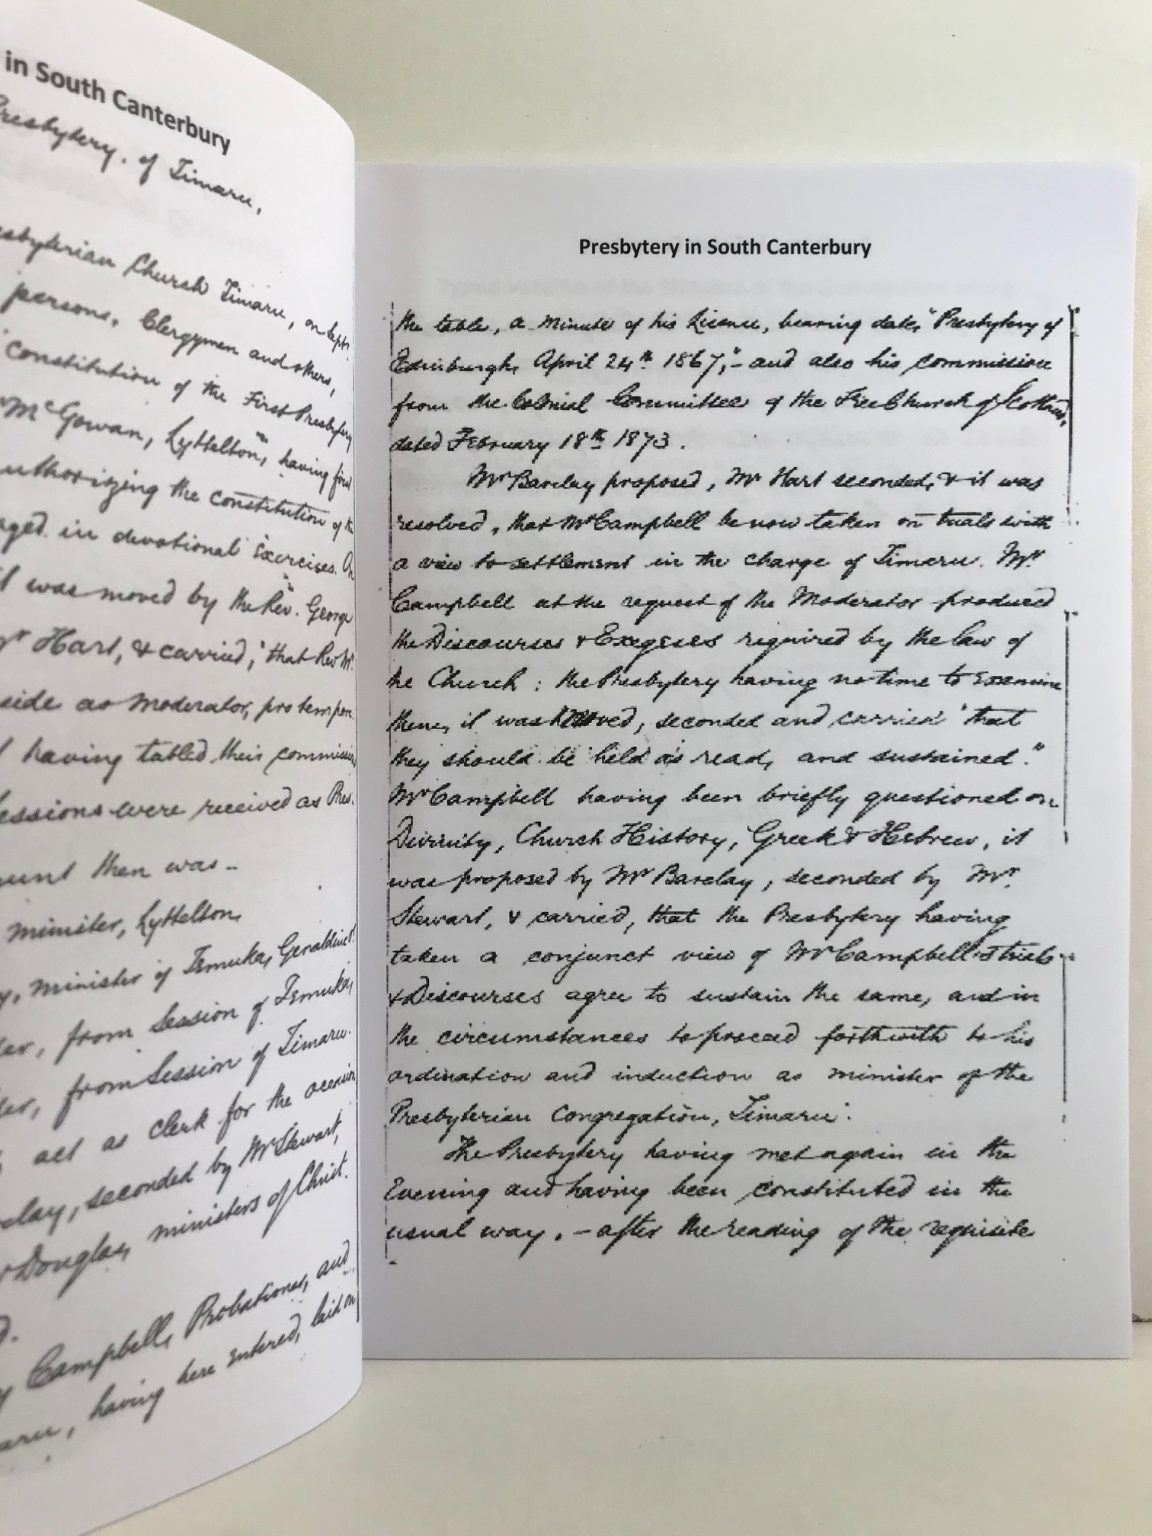 in South Canterbury
Presbytery, of Timaru,
Presbyterian Church Timaru, on Sept.
persons, Clergymen and others,
constitution of the First Presbytery
McGowan, Lyttelton, having first
authorizing the constitution of the
engaged in devotional Exercises. On
it was moved by the Rev. George
Mr Hart, & carried, "that Rev Mr.
side as moderator, pro tempore.
having tabled their commissions
Sessions were received as Pres.
then was –
minister, Lyttelton,
minister of Temuka, Geraldine
from Session of Temuka,
from Session of Timaru.
act as Clerk for the occasion
seconded by Mr Stewart,
Douglas, ministers of Christ.
Campbell, Probationer, and
having here entered, laid on
Presbytery in South Canterbury
the table, a minute of his Licence, bearing date, "Presbytery of
Edinburgh, April 24th 1867," – and also his commission
from the Colonial Committee of the Free Church of Scotland,
dated February 18th 1873.
Mr Barclay proposed, Mr Hart seconded, & it was
resolved, that Mr Campbell be now taken on trials with
a view to settlement in the charge of Timaru. Mr
Campbell at the request of the Moderator produced
the Discourses & Exegeses required by the law of
the Church: the Presbytery having no time to Examine
them, it was moved, seconded and carried "that
they should be held as read, and sustained."
Mr Campbell having been briefly questioned on
Divinity, Church History, Greek & Hebrew, it
was proposed by Mr Barclay, seconded by Mr.
Stewart, & carried, that the Presbytery having
taken a conjunct view of Mr Campbell's trials
& Discourses agree to sustain the same, and in
the circumstances to proceed forthwith to his
ordination and induction as minister of the
Presbyterian Congregation, Timaru.
The Presbytery having met again in the
Evening and having been constituted in the
usual way, – after the reading of the requisite